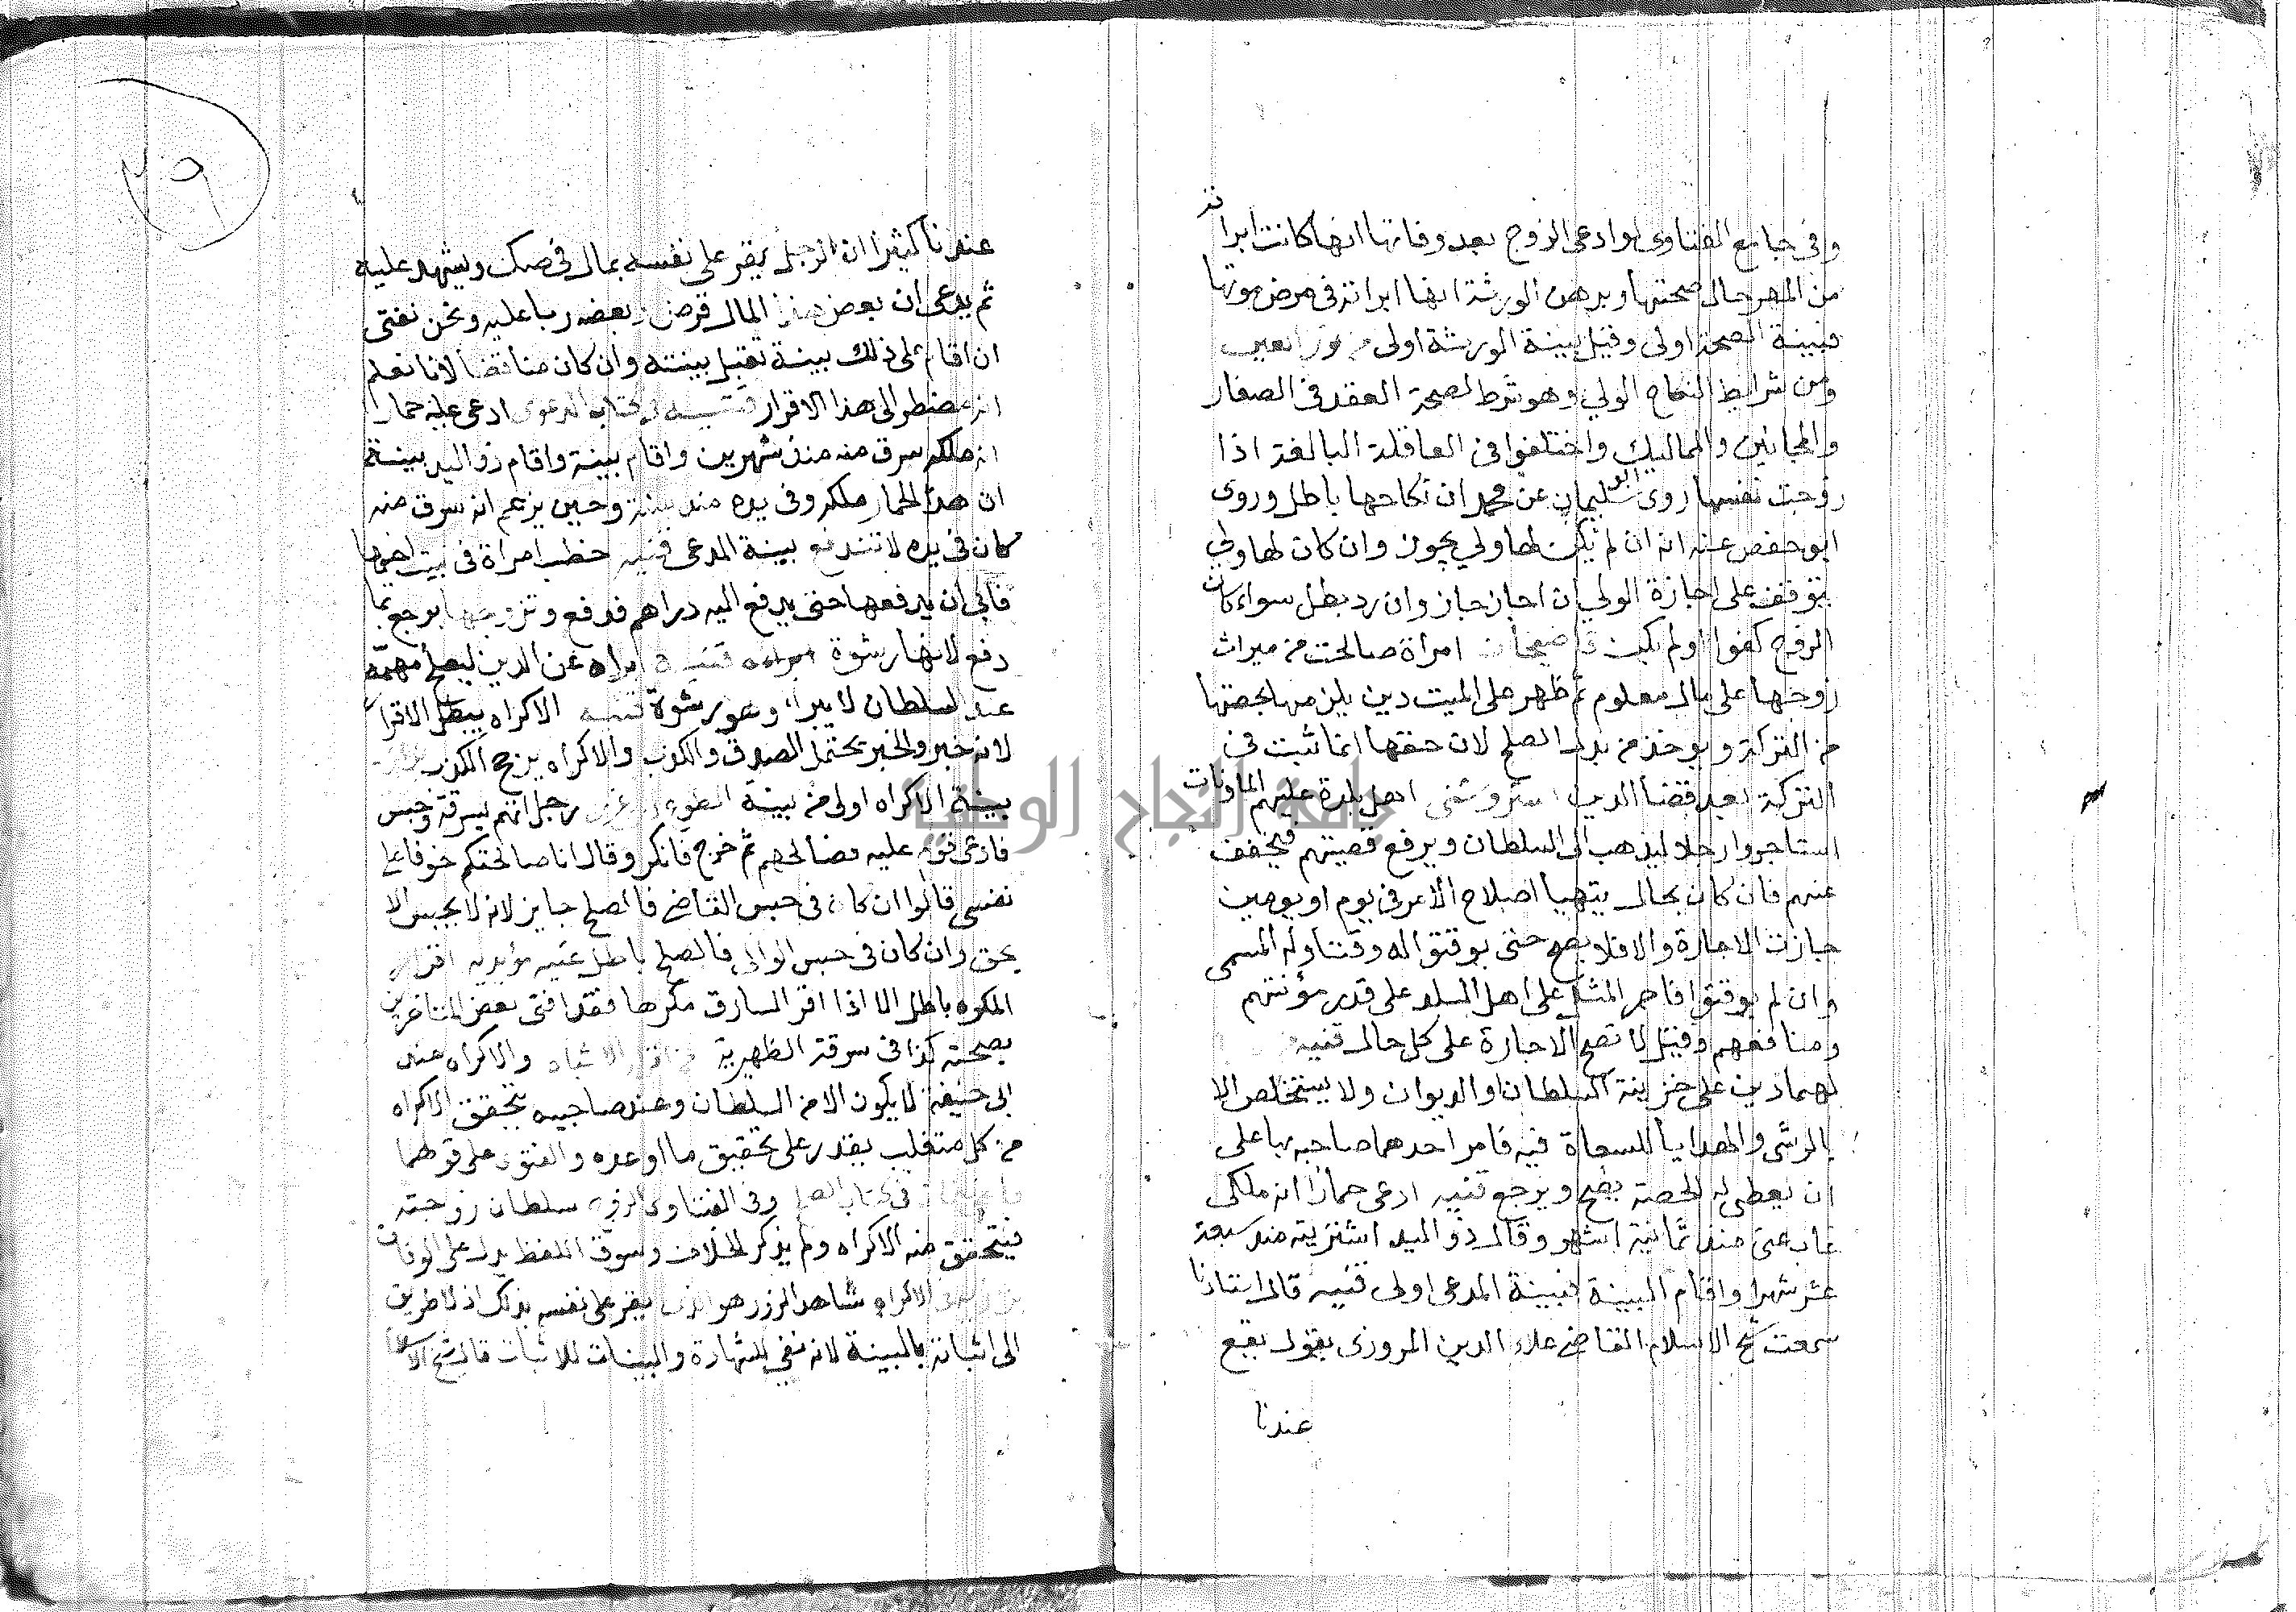 وفى جامع الفتاوى لو ادعى الزوج بعد وفاتها انها كانت ابراته
من المهر حال صحتها وبرهن الورثة انها ابراته فى مرض موتها
فبينة الصحة اولى وقيل بينة الورثة اولى
ومن شرايط النكاح الولي وهو شرط لصحة العقد فى الصغار
والمجانين والمماليك واختلفوا فى العاقلة البالغة اذا
زوجت نفسها روى ابو سليمان عن محمد ان نكاحها باطل وروى
ابو حفص عنه انه ان لم يكن لها ولي يجوز وان كان لها ولي
يتوقف على اجازة الولي ان اجاز جاز وان رد بطل سواء كان
الزوج كفوا او لم يكن امراة صالحت من ميراث
زوجها على مال معلوم ثم ظهر على الميت دين يلزمها بحصتها
من التركة ويوخذ من بدل الصلح لان حقها انما ثبت فى
التركة بعد قضا الدين اهل بلدة عليهم الماونات
استاجروا رجلا ليذهب الى السلطان ويرفع قصيتهم فيخفف
عنهم فان كان بحال يتهيا اصلاح الامر فى يوم او يومين
جازت الاجارة والا فلا يصح حتى يوقتوا له وقتا وله المسمى
وان لم يوقتوا فاجر المثل على اهل البلد على قدر مؤنتهم
ومنافعهم وقيل لا تصح الاجارة على كل حال قنيه
لهما دين على خزينة السلطان او الديوان ولا يستخلص الا
بالرشى والهدايا للسعاة فيه فامر احدهما صاحبه بها على
ان يعطى له الحصة يصح ويرجع قنيه ادعى حمارا انه ملكى
غاب عنى منذ ثمانية اشهر وقال ذو اليد اشتريته منذ سبعة
عشر شهرا واقام البينة فبينة المدعى اولى قنيه قال استاذنا
سمعت شيخ الاسلام القاضى علاء الدين المروزى يقول يقع
عندنا
٢٩
عندنا كثيرا ان الرجل يقر على نفسه بمال فى صك ويشهد عليه
ثم يدعى ان بعض هذا المال قرض وبعضه ربا عليه ونحن نفتى
ان اقام على ذلك بينة تقبل بينته وان كان مناقضا لانا نعلم
انه مضطر الى هذا الاقرار قنيه فى كتاب الدعوى ادعى عليه حمارا
انه ملكه سرق منه منذ شهرين واقام بينة واقام ذو اليد بينة
ان هذا الحمار ملكه وفى يده منذ سنة وحين يزعم انه سرق منه
كان فى يده لا تندفع بينة المدعى قنيه خطب امراة فى بيت اخيها
فابى ان يدفعها حتى يدفع اليه دراهم فدفع وتزوجها يرجع بما
دفع لانها رشوة قنيه ابراه عن الدين ليصلح مهمه
عند السلطان لا يبرا، وهو رشوة قنيه الاكراه يبطل الاقرار
لانه خبر والخبر يحتمل الصدق والكذب والاكراه يرجح الكذب
بينة الاكراه اولى من بينة الطوع رجل اتهم بسرقة وحبس
فادعى قوم عليه فصالحهم ثم خرج فانكر وقال انا صالحتكم خوفا على
نفسى قالوا ان كان فى حبس القاضى فالصلح جايز لانه لا يحبس الا
بحق وان كان فى حبس الوالى فالصلح باطل
المكره باطل الا اذا اقر السارق مكرها فقد افتى بعض المتاخرين
بصحته كذا فى سرقة الظهيرية الاشباه والاكراه عند
ابى حنيفة لا يكون الا من السلطان وعند صاحبيه يتحقق الاكراه
من كل متغلب يقدر على تحقيق ما اوعده والفتوى على قولهما
فى كتاب الصلح وفى الفتاوى سلطان زوجته
فيتحقق منه الاكراه ولم يذكر الخلاف وسوق اللفظ يدل على الوفاق
الاكراه شاهد الزور هو الذى يقر على نفسه بذلك اذ لا طريق
الى اثباته بالبينة لانه نفى للشهادة والبينات للاثبات قال شيخ الاسلام
جامعة النجاح الوطنية